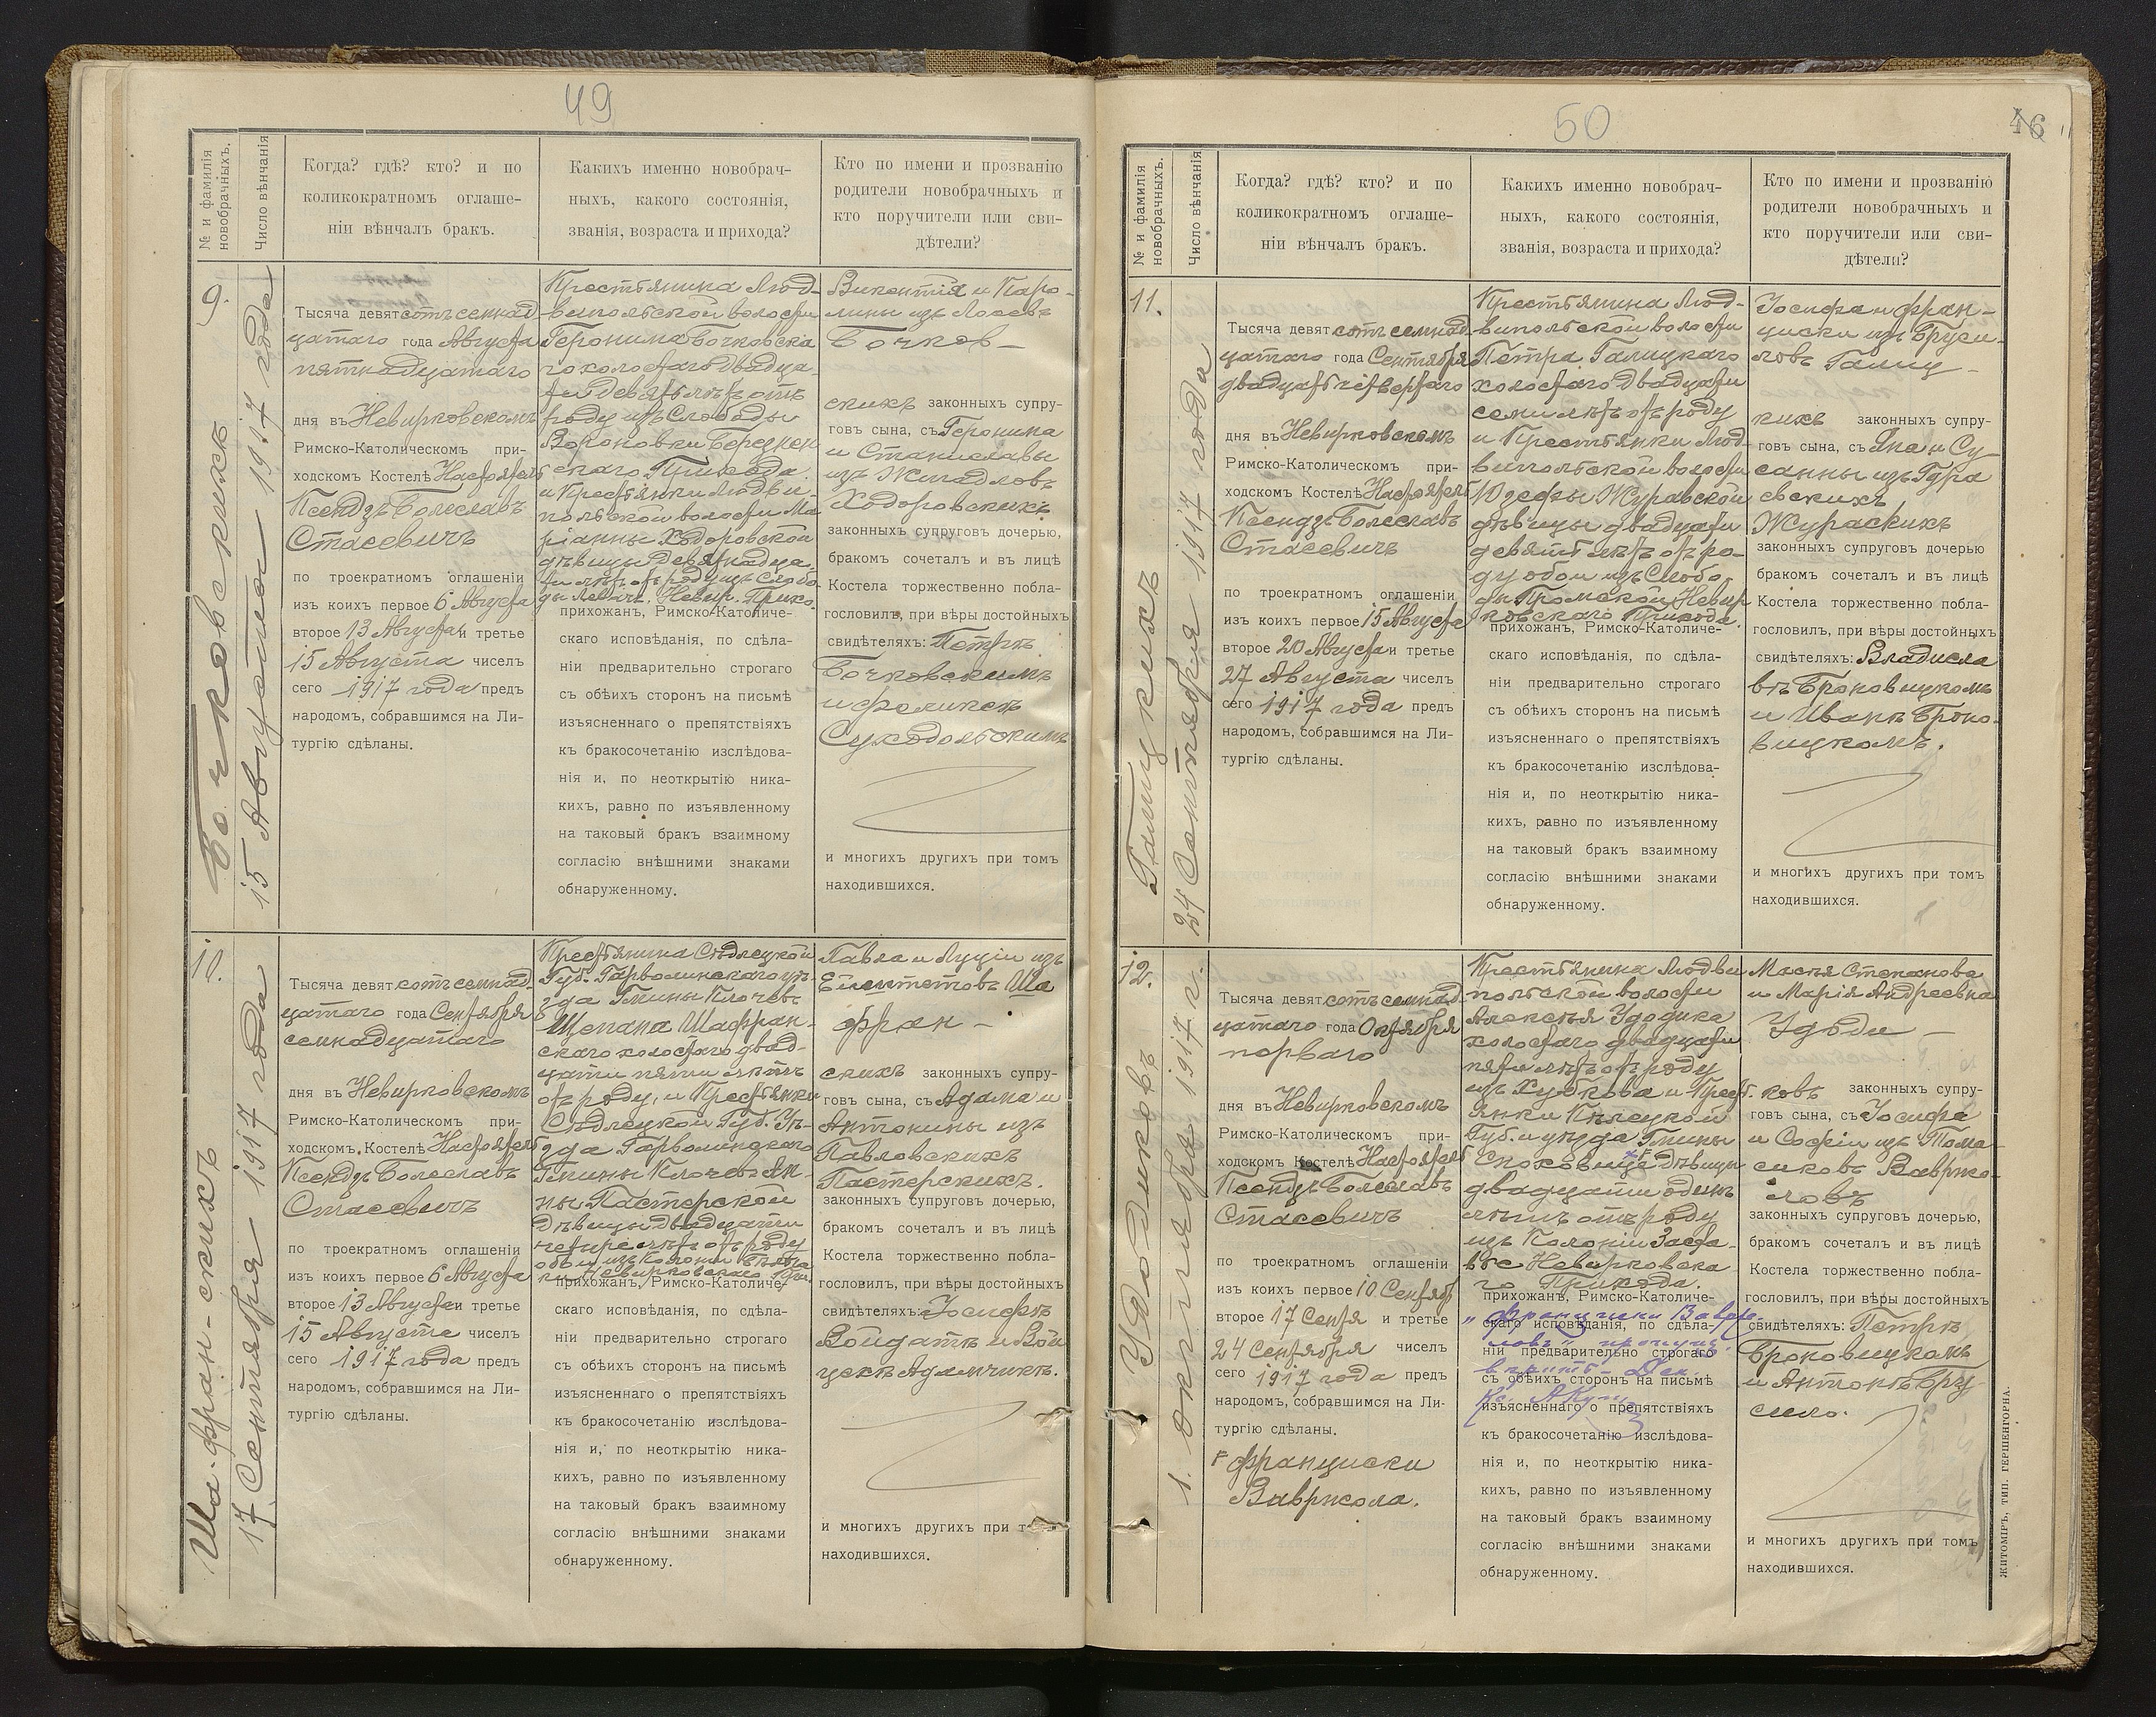 49
№ и фамилія новобрачныхъ.
Число вѣнчанія
Когда? гдѣ? кто? и по
коликократномъ оглаше-
ніи вѣнчалъ бракъ.
Какихъ именно новобрач-
ныхъ, какого состоянія,
званія, возраста и прихода?
Кто по имени и прозванію
родители новобрачныхъ и
кто поручители или сви-
дѣтели?
9.
Бочковскихъ
15 Августа 1917 года
Тысяча девятсотъ семнад
цатаго года Августа
пятнадцатаго
дня въ Невирковскомъ
Римско-Католическомъ при-
ходскомъ Костелѣ Настоятель
Ксендзъ Болеславъ
Стасевичъ
по троекратномъ оглашеніи
изъ коихъ первое 6 Августа
второе 13 Августа и третье
15 Августа чиселъ
сего 1917 года предъ
народомъ, собравшимся на Ли-
тургію сдѣланы.
Крестьянина Люд-
випольской волости
Геронима Бочковска
го холостаго двадца-
ти девять лѣтъ отъ
роду изъ Слободы
Вороновки Березнен
скаго Прихода
и Крестьянки Людви-
польской волости Ма
ріанны Ходоровской
дѣвицы девятнадца-
ти лѣтъ отъ роду изъ Слобо
ды Невир. Прихо.
прихожанъ, Римско-Католиче-
скаго исповѣданія, по сдѣла-
ніи предварительно строгаго
съ обѣихъ сторонъ на письмѣ
изъясненнаго о препятствіяхъ
къ бракосочетанію изслѣдова-
нія и, по неоткрытію ника-
кихъ, равно по изъявленному
на таковый бракъ взаимному
согласію внѣшними знаками
обнаруженному.
Викентія и Каро-
лины изъ Лосевъ
Бочков-
скихъ законныхъ супру-
говъ сына, съ Геронима
и Станиславы
изъ Жигадловъ
Ходоровскихъ
законныхъ супруговъ дочерью,
бракомъ сочеталъ и въ лицѣ
Костела торжественно побла-
гословилъ, при вѣры достойныхъ
свидѣтеляхъ: Петрѣ
Бочковскимъ
и Феликсѣ
Суходольскимъ
и многихъ другихъ при томъ
находившихся.
10.
Ша-фран-скихъ
17 Сентября 1917 года
Тысяча девятсотъ семнад.
цатаго года Сентября
семнадцатаго
дня въ Невирковскомъ
Римско-Католическомъ при-
ходскомъ Костелѣ Настоятель
Ксендзъ Болеславъ
Стасевичъ
по троекратномъ оглашеніи
изъ коихъ первое 6 Августа
второе 13 Августа и третье
15 Августа чиселъ
сего 1917 года предъ
народомъ, собравшимся на Ли-
тургію сдѣланы.
Крестьянина Сѣдлецкой
Губ. Гарволинскаго уѣ-
зда Гмины Клочевъ
Щепана Шафран-
скаго холостаго двад-
цати пяти лѣтъ
отъ роду, и Крестьянки
Сѣдлецкой Губ. Уѣ-
зда Гарволинскаго
Гмины Клочевъ Ан-
ны Пастерской
дѣвицы двадцати
четыре лѣтъ отъ роду
обои изъ Колоніи
Невирковскаго При
прихожанъ, Римско-Католиче-
скаго исповѣданія, по сдѣла-
ніи предварительно строгаго
съ обѣихъ сторонъ на письмѣ
изъясненнаго о препятствіяхъ
къ бракосочетанію изслѣдова-
нія и, по неоткрытію ника-
кихъ, равно по изъявленному
на таковый бракъ взаимному
согласію внѣшними знаками
обнаруженному.
Павла и Луціи изъ
Ша
фран-
скихъ законныхъ супру-
говъ сына, съ Адама и
Антонины изъ
Павловскихъ
Пастерскихъ.
законныхъ супруговъ дочерью,
бракомъ сочеталъ и въ лицѣ
Костела торжественно побла-
гословилъ, при вѣры достойныхъ
свидѣтеляхъ: Іосифѣ
Войдатѣ и Вой
цехѣ Адамчикѣ.
и многихъ другихъ при т
находившихся.
50
46
№ и фамилія новобрачныхъ.
Число вѣнчанія
Когда? гдѣ? кто? и по
коликократномъ оглаше-
ніи вѣнчалъ бракъ.
Какихъ именно новобрач-
ныхъ, какого состоянія,
званія, возраста и прихода?
Кто по имени и прозванію
родители новобрачныхъ и
кто поручители или сви-
дѣтели?
11.
Галицкихъ
24 Сентября 1917 года
Тысяча девят сотъ семнад.
цатаго года Сентября
двадцать четвертаго
дня въ Невирковскомъ
Римско-Католическомъ при-
ходскомъ Костелѣ Настоятель
Ксендзъ Болеславъ
Стасевичъ
по троекратномъ оглашеніи
изъ коихъ первое 15 Августа
второе 20 Августа и третье
27 Августа чиселъ
сего 1917 года предъ
народомъ, собравшимся на Ли-
тургію сдѣланы.
Крестьянина Люд-
випольской волости
Петра Галицкаго
холостаго двадцати
семи лѣтъ отъ роду
и Крестьянки Люд-
випольской волости
Юзефы Журавской
дѣвицы двадцати
девять лѣтъ отъ ро-
ду обои изъ Слобо
ды Невир
ковскаго Прихода.
прихожанъ, Римско-Католиче-
скаго исповѣданія, по сдѣла-
ніи предварительно строгаго
съ обѣихъ сторонъ на письмѣ
изъясненнаго о препятствіяхъ
къ бракосочетанію изслѣдова-
нія и, по неоткрытію ника-
кихъ, равно по изъявленному
на таковый бракъ взаимному
согласію внѣшними знаками
обнаруженному.
Іосифа и Фран-
циски изъ Бруси-
ловъ Галиц-
кихъ законныхъ супру-
говъ сына, съ Яна и Су-
санны изъ Гура
евскихъ
Жураскихъ
законныхъ супруговъ дочерью
бракомъ сочеталъ и въ лицѣ
Костела торжественно побла-
гословилъ, при вѣры достойныхъ
свидѣтеляхъ: Владисла
вѣ Броковицкомъ
и Иванѣ Броко-
вицкомъ.
и многихъ другихъ при томъ
находившихся.
12.
Удодиковъ
1. октября 1917. г.
Тысяча девят сотъ семнад.
цатаго года Октября
перваго
дня въ Невирковскомъ
Римско-Католическомъ при-
ходскомъ Костелѣ Настоятель
Ксендзъ Болеславъ
Стасевичъ
по троекратномъ оглашеніи
изъ коихъ первое 10 Сентяб
второе 17 Сентя и третье
24 Сентября чиселъ
сего 1917 года предъ
народомъ, собравшимся на Ли-
тургію сдѣланы.
Франциски
Вавржола.
Крестьянина Людви
польской волости
Алексѣя Удодика
холостаго двадцати
пяти лѣтъ отъ роду
изъ Хубкова и Крест.
янки Кѣлецкой
Губ. и уѣзда Гмины
дѣвицы
двадцати одинъ
лѣтъ отъ роду
изъ Колоніи
Невирковска
го Прихода.
прихожанъ, Римско-Католиче-
„Франциски Вавр
скаго исповѣданія, по сдѣла-
ніи предварительно строгаго
съ обѣихъ сторонъ на письмѣ
изъясненнаго о препятствіяхъ
къ бракосочетанію изслѣдова-
нія и, по неоткрытію ника-
кихъ, равно по изъявленному
на таковый бракъ взаимному
согласію внѣшними знаками
обнаруженному.
Степанова
и Марія Андреевна
Удоди-
ковъ законныхъ супру-
говъ сына, съ Іосифа
и Софіи изъ Тома
сиковъ Вавржо-
ловъ
законныхъ супруговъ дочерью,
бракомъ сочеталъ и въ лицѣ
Костела торжественно побла-
гословилъ, при вѣры достойныхъ
свидѣтеляхъ: Петрѣ
Броковицкомъ
и Антонѣ Бру-
сило.
и многихъ другихъ при томъ
находившихся.
ЖИТОМІРЪ, ТИП. ГЕРШЕНГОРНА.